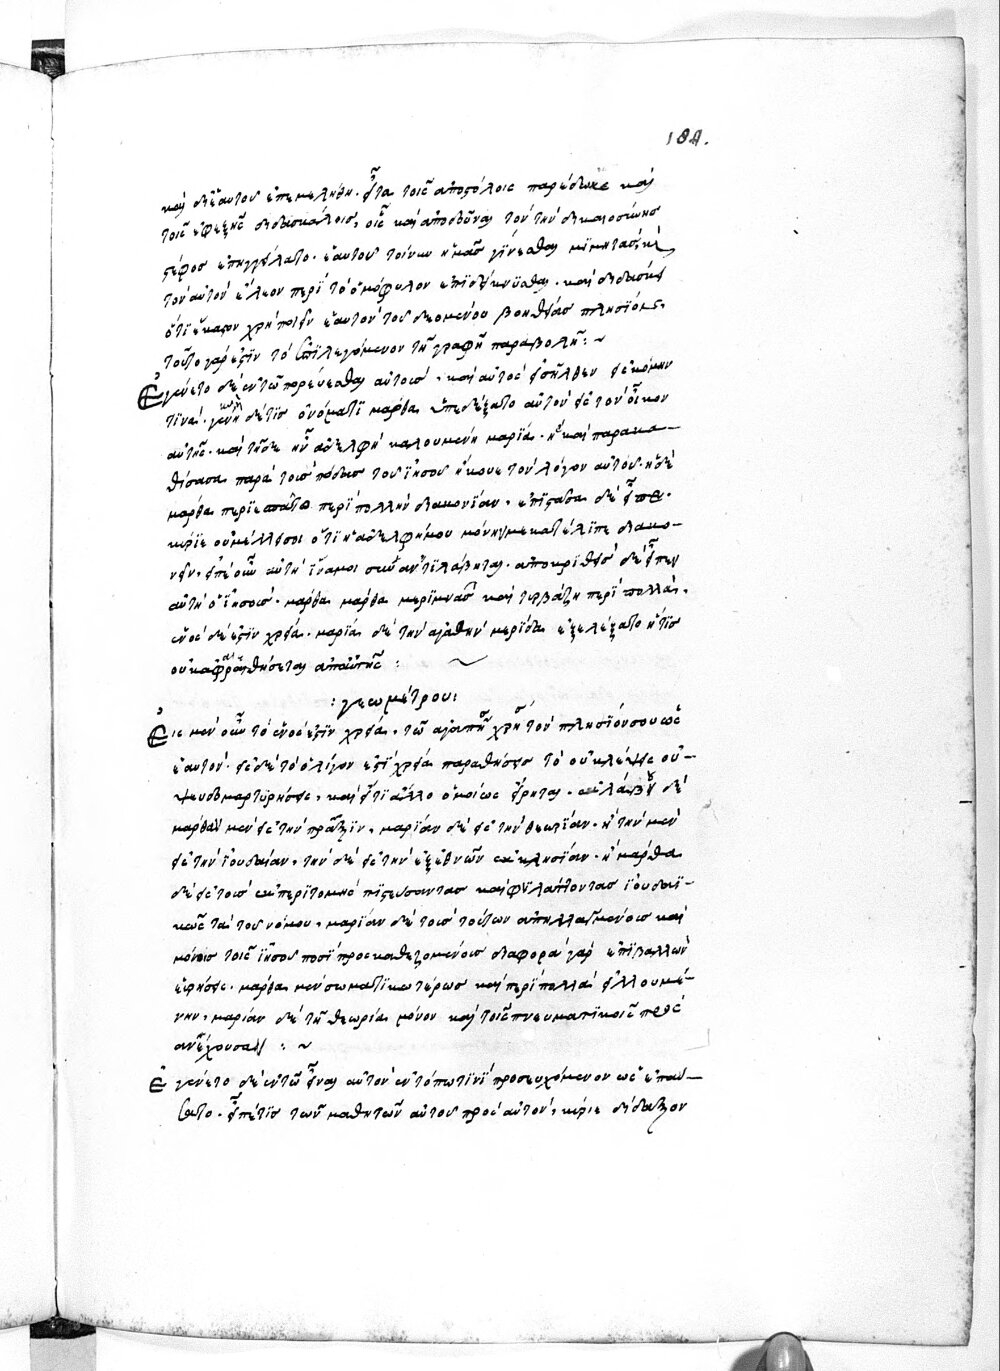 184.
καὶ δι' ἑαυτοῦ ἐπεμελήθη. εἶτα τοῖς ἀποστόλοις παρέδωκε καὶ
τοῖς ἐφεξῆς διδασκάλοις, οἷς καὶ ἀποδοῦναι τὸν τῆν δικαιοσύνης
στέφος ἐπηγγείλατο. ἑαυτοῦ τοίνυν ἡμᾶς γίνεσθαι μιμητὰς
τὸν αὐτὸν ἔλεον περὶ τὸ ὁμόφυλον ἐπιδείκνυσθαι. καὶ διδάσκει
ὅτι ἕκαστον χρὴ ποιεῖν ἑαυτὸν τοῦ δεομένου βοηθείας πλησίον.
τοῦτο γάρ ἐστιν τὸ ἐπιλεγόμενον τῇ γραφῇ παραβολῆ: ~
Ἐγένετο δὲ ἐν τῷ πορεύεσθαι αὐτοὺς, καὶ αὐτὸς εἰσῆλθεν εἰς κώμην
τινά. γυνὴ δέ τις ὀνόματι μάρθα ὑπεδέξατο αὐτὸν εἰς τὸν οἶκον
αὐτῆς. καὶ τῇδε ἦν ἀδελφὴ καλουμένη μαρία. ἣ καὶ παρακα-
θίσασα παρὰ τοὺς πόδας τοῦ ἰησοῦ ἤκουε τὸν λόγον αὐτοῦ. ἡ δὲ
μάρθα περιεσπᾶτο περὶ πολλὴν διακονίαν. ἐπιστᾶσα δὲ εἶπε.
κύριε οὐ μέλει σοι ὅτι ἡ ἀδελφή μου μόνην με κατέλιπε διακο-
νεῖν. εἰπὲ οὖν αὐτῇ ἵνα μοι συναντιλάβηται. ἀποκριθεὶς δὲ εἶπεν
αὐτῇ ὁ ἰησοῦς. μάρθα μάρθα μεριμνᾷς καὶ τυρβάζῃ περὶ πολλὰ.
ἑνὸς δέ ἐστιν χρεία. μαρία δὲ τὴν ἀγαθὴν μερίδα ἐξελέξατο ἥτις
οὐκ ἀφαιρεθήσεται ἀπ' αὐτῆς:
: γεωμέτρου:
Εἰς μὲν οὖν τὸ ἑνός ἐστιν χρεία, τῷ ἀγαπήσεις χρῆ τὸν πλησίον σου ὡς
ἑαυτόν. εἰς δὲ τὸ ὀλίγον ἐστὶ χρεία παραθήσεις τὸ οὐ κλέψεις οὐ-
ψευδομαρτυρήσεις, καὶ εἴ τι ἄλλο ὁμοίως εἴρηται. δὲ
μάρθαν μὲν εἰς τὴν πρᾶξιν, μαρίαν δὲ εἰς τὴν θεωρίαν. ἢ τὴν μὲν
εἰς τὴν ἰουδαίαν, τὴν δὲ εἰς τὴν ἐξ ἐθνῶν ἐκκλησίαν. ἢ μάρθα
δὲ εἰς τοὺς ἐκ περιτομῆς πιστεύσαντας καὶ φυλάττοντας ἰουδαϊ-
κῶς τὰ τοῦ νόμου, μαρίαν δὲ τοὺς τούτων ἀπηλλαγμένοις καὶ
μόνοις τοῖς ἰησοῦ ποσὶ προσκαθεζομένοις διαφορὰ γὰρ ἐπιβαλλων
εὑρήσεις. μάρθα μὲν σωματικωτέρως καὶ περὶ πολλὰ εἰλουμέ-
νην, μαρίαν δὲ τῇ θεωρίᾳ μόνον καὶ τοῖς πνευματικοῖς προσ
ανέχουσαν: ~
Ἐγένετο δὲ ἐν τῷ εἶναι αὐτὸν ἐν τόπῳ τινὶ προσευχόμενον ὡς ἐπαύ-
σατο. εἶπέ τις τῶν μαθητῶν αὐτοῦ πρὸς αὐτόν, κύριε δίδαξον